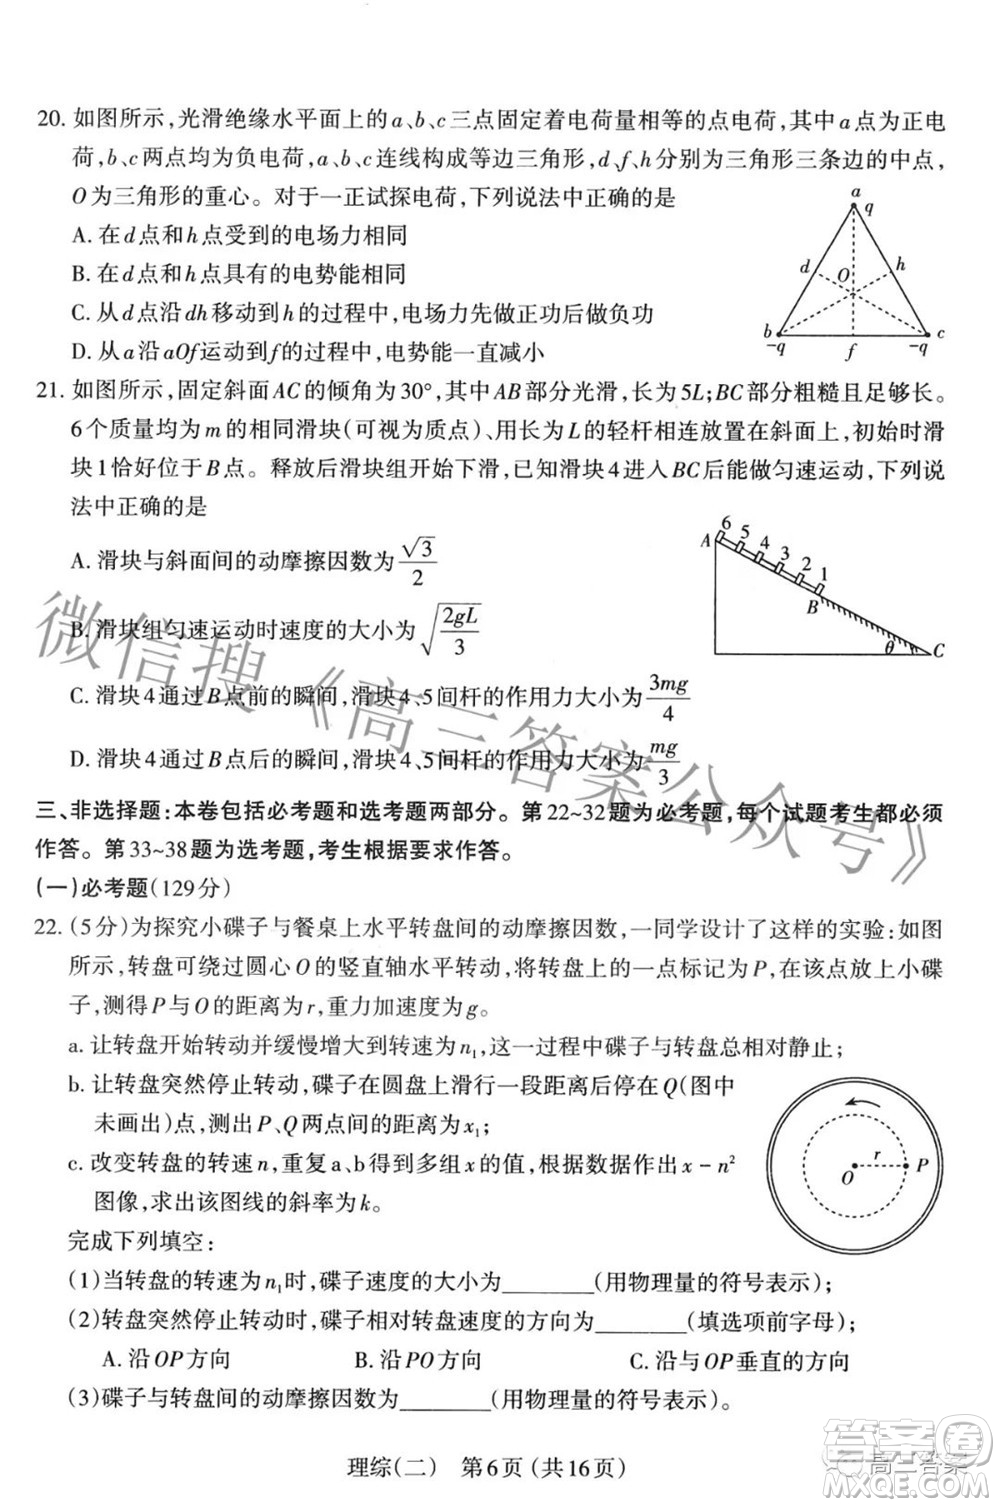 20. 如图所示,光滑绝缘水平面上的a、b、c三点固定着电荷量相等的点电荷,其中a点为正电
荷,b、c两点均为负电荷,a、b、c连线构成等边三角形,d、f、h分别为三角形三条边的中点,
O为三角形的重心。对于一正试探电荷,下列说法中正确的是
A. 在d点和h点受到的电场力相同
B. 在d点和h点具有的电势能相同
C. 从d点沿dh移动到h的过程中,电场力先做正功后做负功
D. 从a沿aOf运动到f的过程中,电势能一直减小
a
q
d
O
h
b
-q
f
c
-q
21. 如图所示,固定斜面AC的倾角为30°,其中AB部分光滑,长为5L;BC部分粗糙且足够长。
6个质量均为m的相同滑块(可视为质点)、用长为L的轻杆相连放置在斜面上,初始时滑
块1恰好位于B点。释放后滑块组开始下滑,已知滑块4进入BC后能做匀速运动,下列说
法中正确的是
A. 滑块与斜面间的动摩擦因数为√3/2
B. 滑块组匀速运动时速度的大小为√(2gL/3)
C. 滑块4通过B点前的瞬间,滑块4、5间杆的作用力大小为3mg/4
D. 滑块4通过B点后的瞬间,滑块4、5间杆的作用力大小为mg/3
A 6 5 4 3 2 1
B
θ
C
三、非选择题:本卷包括必考题和选考题两部分。第22~32题为必考题,每个试题考生都必须
作答。第33~38题为选考题,考生根据要求作答。
(一)必考题(129分)
22. (5分)为探究小碟子与餐桌上水平转盘间的动摩擦因数,一同学设计了这样的实验:如图
所示,转盘可绕过圆心O的竖直轴水平转动,将转盘上的一点标记为P,在该点放上小碟
子,测得P与O的距离为r,重力加速度为g。
a. 让转盘开始转动并缓慢增大到转速为n₁,这一过程中碟子与转盘总相对静止;
b. 让转盘突然停止转动,碟子在圆盘上滑行一段距离后停在Q(图中
未画出)点,测出P、Q两点间的距离为x₁;
c. 改变转盘的转速n,重复a、b得到多组x的值,根据数据作出x-n²
图像,求出该图线的斜率为k。
O
r
P
完成下列填空:
(1)当转盘的转速为n₁时,碟子速度的大小为______(用物理量的符号表示);
(2)转盘突然停止转动时,碟子相对转盘速度的方向为______(填选项前字母);
A. 沿OP方向 B. 沿PO方向 C. 沿与OP垂直的方向
(3)碟子与转盘间的动摩擦因数为______(用物理量的符号表示)。
理综(二) 第6页(共16页)
微信搜《高三答案公众号》
答案圈
高三答案